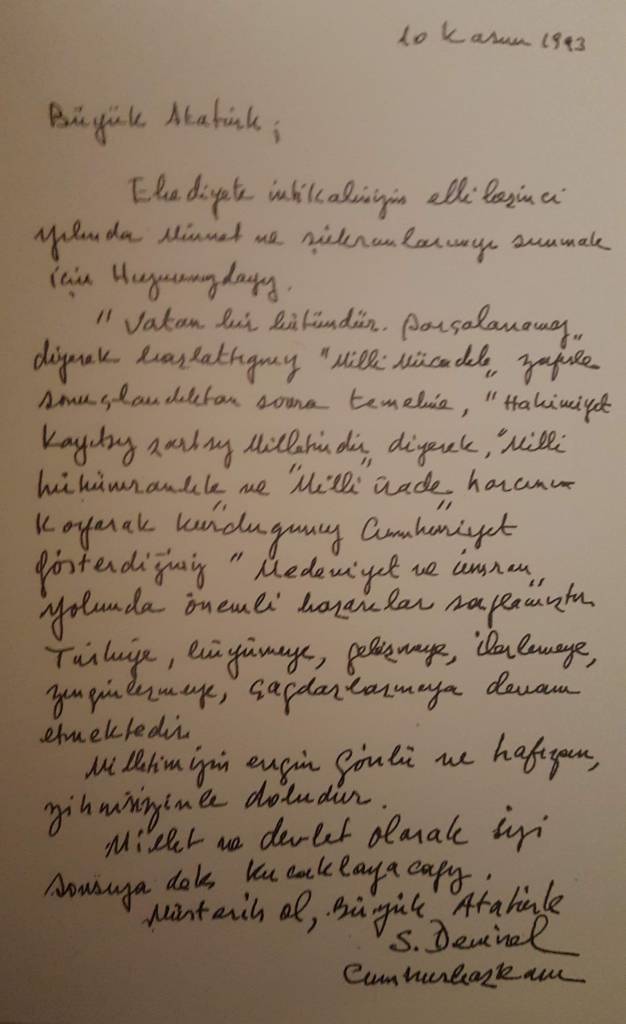 10 Kasım 1993
Büyük Atatürk;
Ebediyete intikalinizin elli beşinci
yılında minnet ve şükranlarımızı sunmak
için Huzurunuzdayız.
"Vatan bir bütündür. Parçalanamaz"
diyerek başlattığınız "Milli Mücadele" zaferle
sonuçlandıktan sonra temeline, "Hakimiyet
Kayıtsız şartsız Milletindir" diyerek, "Milli
hükümranlık ve "Milli" irade" harcını
Koyarak kurduğunuz Cumhuriyet
gösterdiğiniz "Medeniyet ve ümran"
yolunda önemli başarılar sağlamıştır.
Türkiye, büyümeye, gelişmeye, ilerlemeye,
zenginleşmeye, çağdaşlaşmaya devam
etmektedir.
Milletimizin engin gönlü ve hafızası,
zihni sizinle doludur.
Millet ve devlet olarak sizi
sonsuza dek kucaklayacağız.
Müsterih ol, Büyük Atatürk
S. Demirel
Cumhurbaşkanı